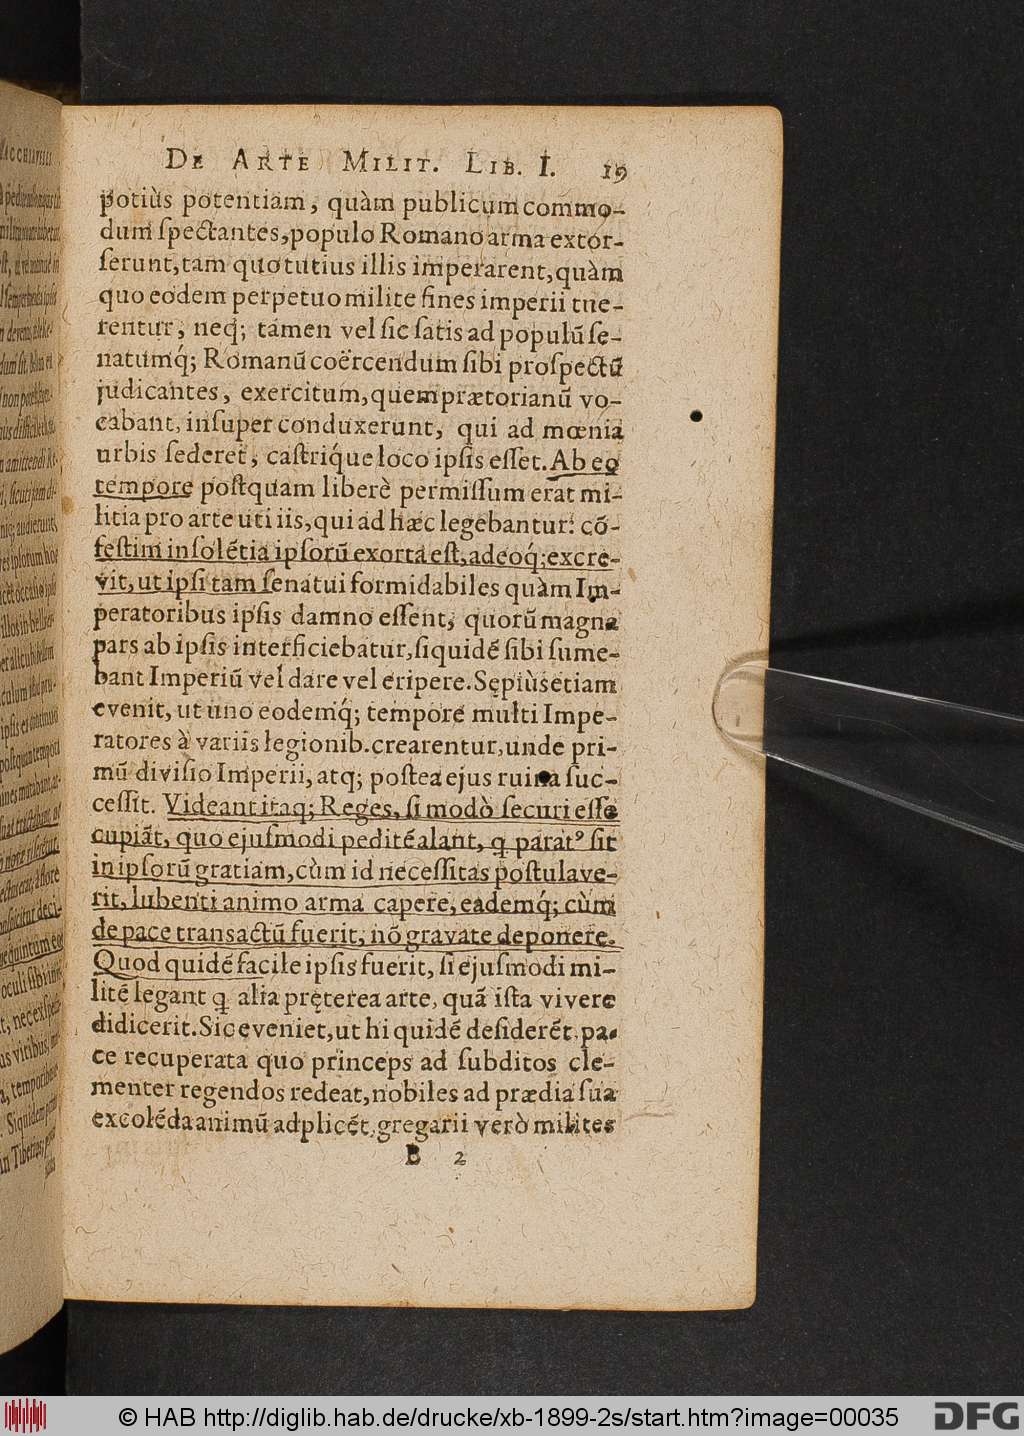 DE ARTE MILIT. LIB. I. 19
potiùs potentiam, quàm publicum commo-
dum ſpectantes, populo Romano arma extor-
ſerunt, tam quo tutius illis imperarent, quàm
quo eodem perpetuo milite fines imperii tue-
rentur, neq; tamen vel ſic ſatis ad populũ ſe-
natumq́; Romanũ coërcendum ſibi proſpectũ
judicantes, exercitum, quem prætorianũ vo-
cabant, inſuper conduxerunt, qui ad mœnia
urbis ſederet, caſtriq́ue loco ipſis eſſet. Ab eo
tempore poſtquam liberè permiſſum erat mi-
litia pro arte uti iis, qui ad hæc legebantur: cõ-
feſtim inſolẽtia ipſorũ exorta eſt, adeoq́; excre-
vit, ut ipſi tam ſenatui formidabiles quàm Im-
peratoribus ipſis damno eſſent, quorũ magna
pars ab ipſis interficiebatur, ſiquidẽ ſibi ſume-
bant Imperiũ vel dare vel eripere. Sępiùs etiam
evenit, ut uno eodemq́; tempore multi Impe-
ratores à variis legionib. crearentur, unde pri-
mũ diviſio Imperii, atq; poſtea ejus ruina ſuc-
ceſſit. Videant itaq; Reges, ſi modò ſecuri eſſe
cupiãt, quo ejuſmodi peditẽ alant, ꝗ parat⁹ ſit
in ipſorũ gratiam, cùm id neceſſitas poſtulave-
rit, lubenti animo arma capere, eademq́; cùm
de pace transactũ fuerit, nõ gravate deponere.
Quod quidẽ facile ipſis fuerit, ſi ejuſmodi mi-
litẽ legant ꝗ alia pręterea arte, quã iſta vivere
didicerit. Sic eveniet, ut hi quidẽ deſiderẽt, pa-
ce recuperata quo princeps ad ſubditos cle-
menter regendos redeat, nobiles ad prædia ſua
excolẽda animũ adplicẽt, gregarii verò milites
B 2
© HAB http://diglib.hab.de/drucke/xb-1899-2s/start.htm?image=00035
DFG